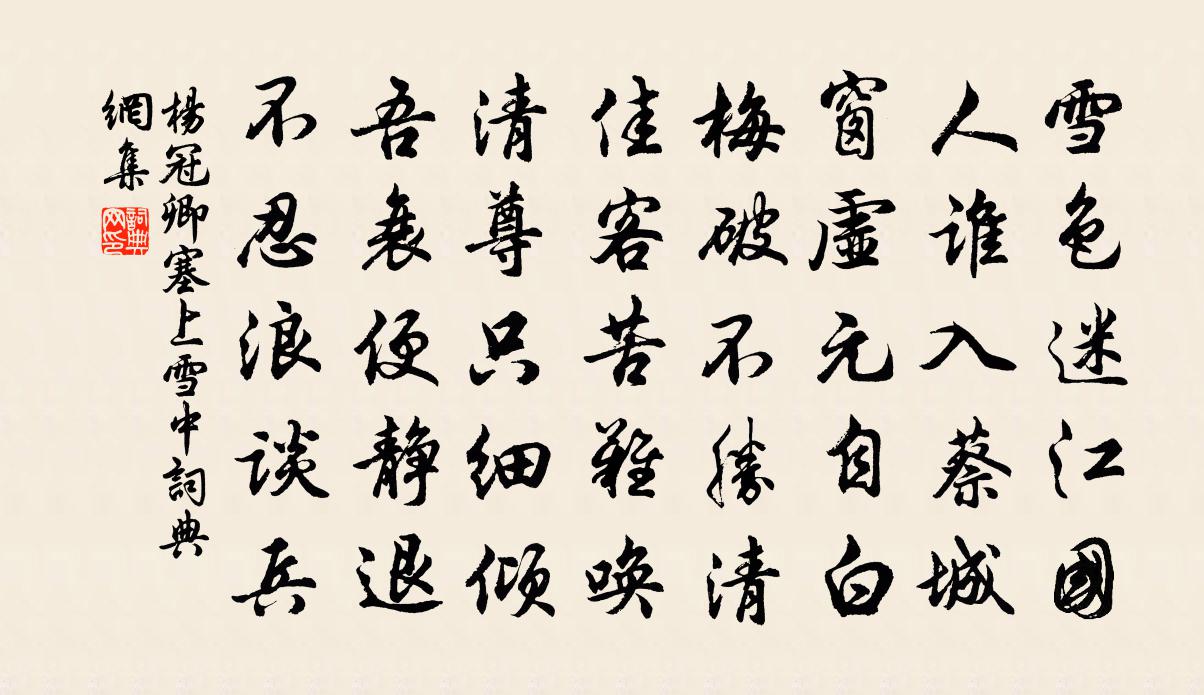 雪色迷江國
人谁入蔡城
窗虛元自白
梅破不勝清
佳客苦難唤
清尊只细倾
吾衰便静退
不忍浪谈兵
楊冠卿塞上雪中詞典
網集
詞典
网印